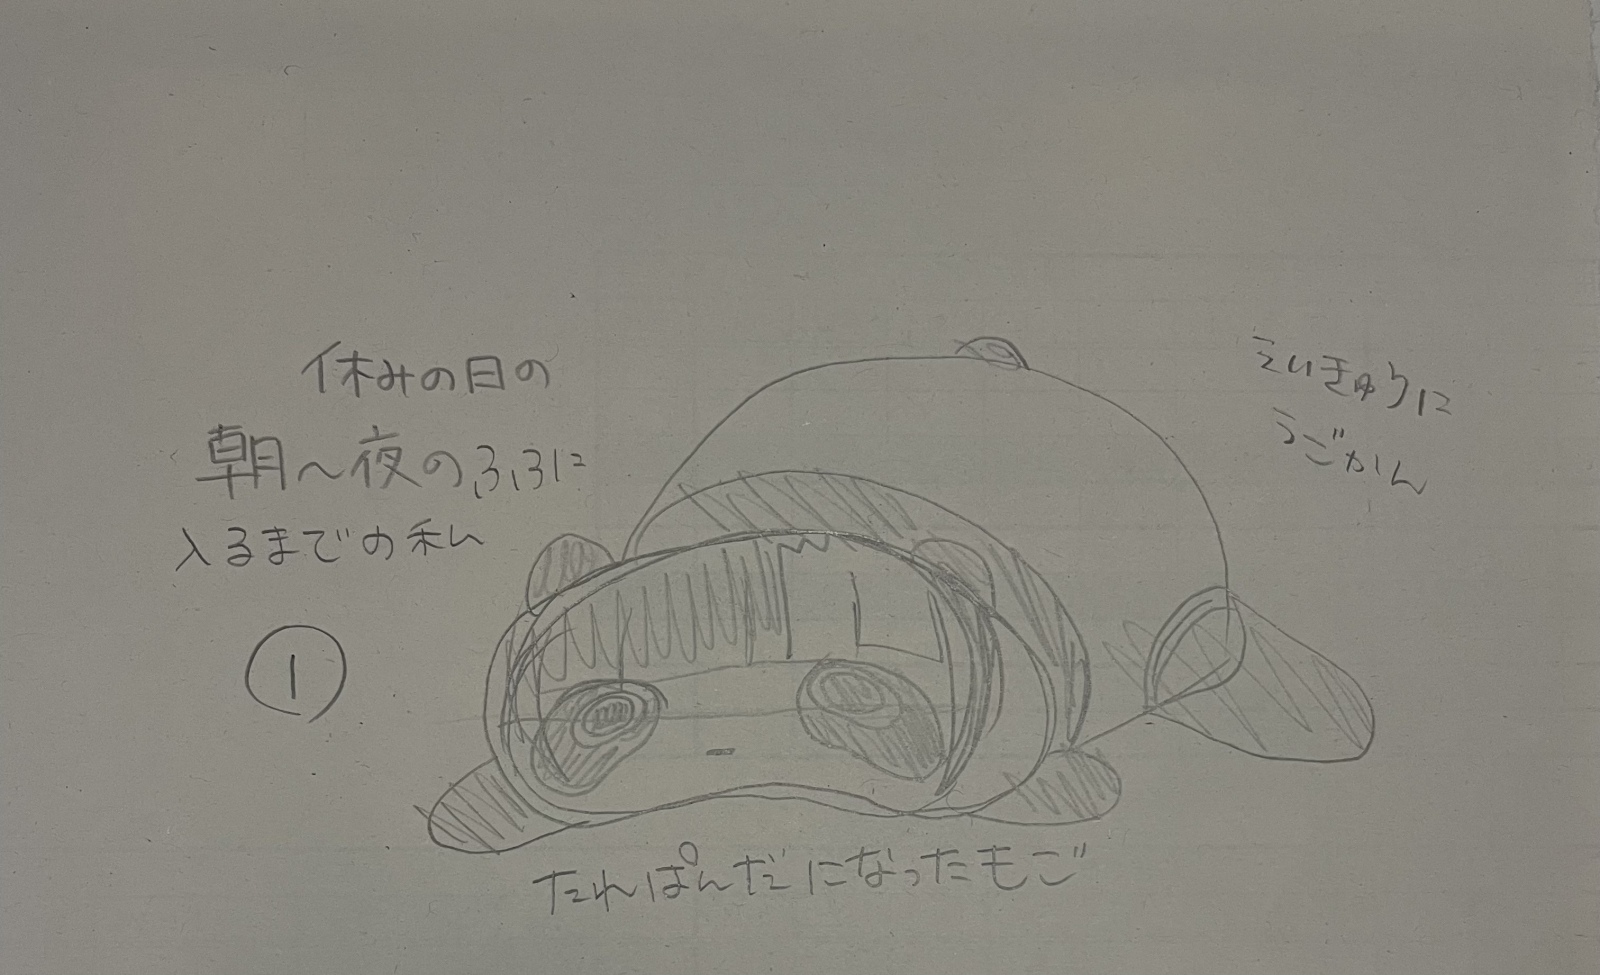 休みの日の
朝～夜のふろに
入るまでの私
①
えいきゅうに
うごかん
たれぱんだになったもご